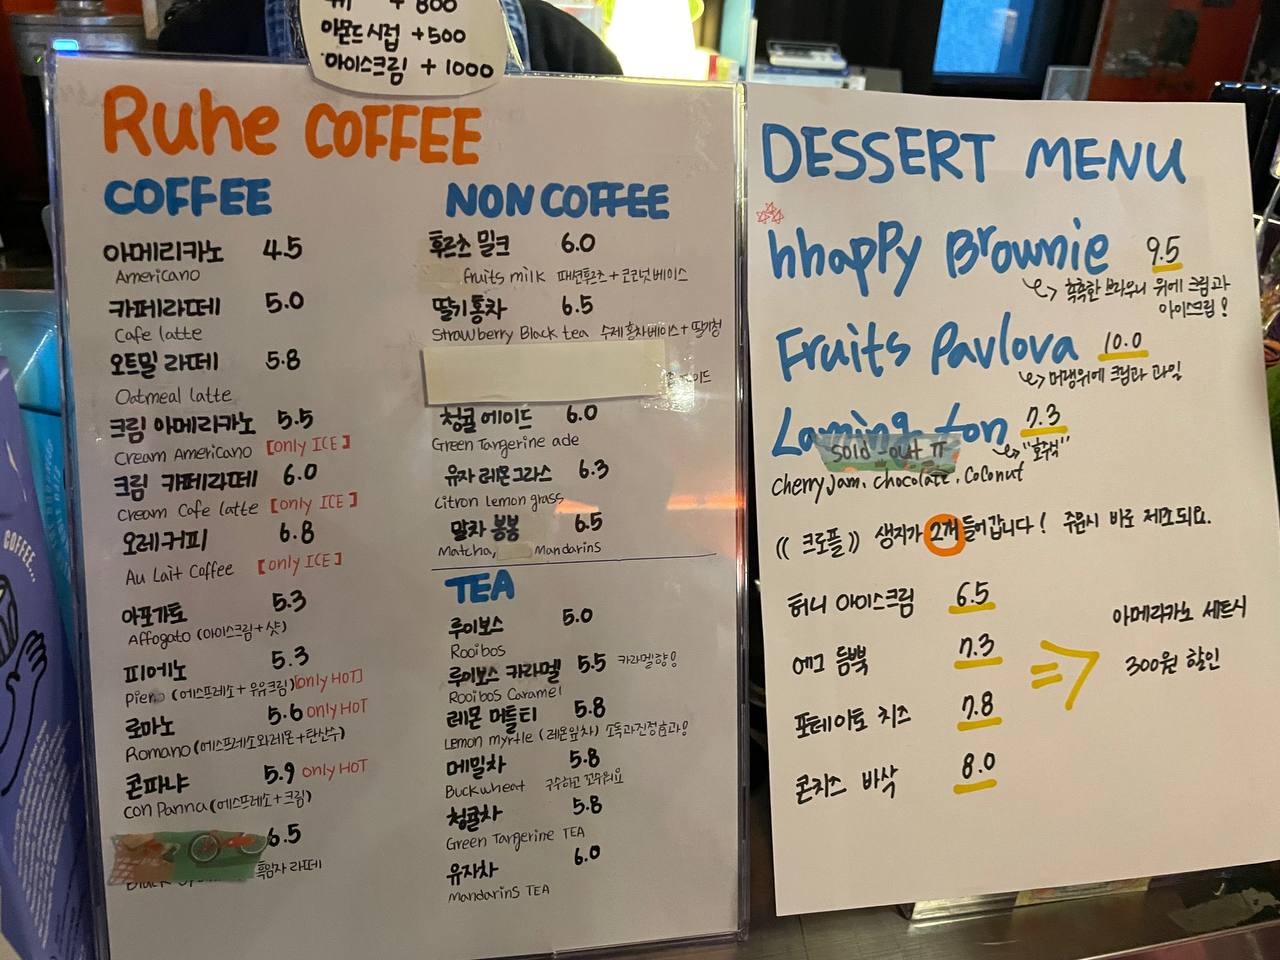 + 800
아몬드시럽 +500
아이스크림 + 1000
Ruhe COFFEE
COFFEE
아메리카노 4.5
Americano
카페라떼 5.0
Cafe latte
오트밀 라떼 5.8
Oatmeal latte
크림 아메리카노 5.5
Cream Americano [only ICE]
크림 카페라떼 6.0
Cream Cafe latte [only ICE]
오레커피 6.8
Au Lait Coffee [only ICE]
아포가토 5.3
Affogato (아이스크림+샷)
피에노 5.3
Pieno (에스프레소+우유크림) [only HOT]
로마노 5.6 only HOT
Romano (에스프레소와레몬+탄산수)
콘파냐 5.9 only HOT
Con Panna (에스프레소+크림)
6.5
Black 흑임자 라떼
NON COFFEE
후르츠 밀크 6.0
fruits milk 패션후르츠+코코넛베이스
딸기홍차 6.5
Strawberry Black tea 수제홍차베이스+딸기청
청귤에이드 6.0
Green Tangerine ade
유자레몬그라스 6.3
Citron Lemon grass
말차 봉봉 6.5
Matcha, Mandarins
TEA
루이보스 5.0
Rooibos
루이보스 카라멜 5.5 카라멜향!
Rooibos Caramel
레몬 머틀티 5.8
Lemon myrtle (레몬잎차) 소독과진정효과!
메밀차 5.8
Buckwheat 구수하고 꼬수워요
청귤차 5.8
Green Tangerine TEA
유자차 6.0
Mandarins TEA
DESSERT MENU
hhappy Brownie 9.5
촉촉한 브라우니 위에 크림과
아이스크림!
Fruits Pavlova 10.0
머랭위에 크림과 과일
Lamington 7.3
sold out ㅠ
"호주식"
Cherry jam, chocolate, coconut
(( 크로플 )) 생지가 2개 들어갑니다! 주문시 바로 제조되요.
허니 아이스크림 6.5
에그 듬뿍 7.3
포테이토 치즈 7.8
콘치즈 바삭 8.0
아메리카노 세트시
300원 할인